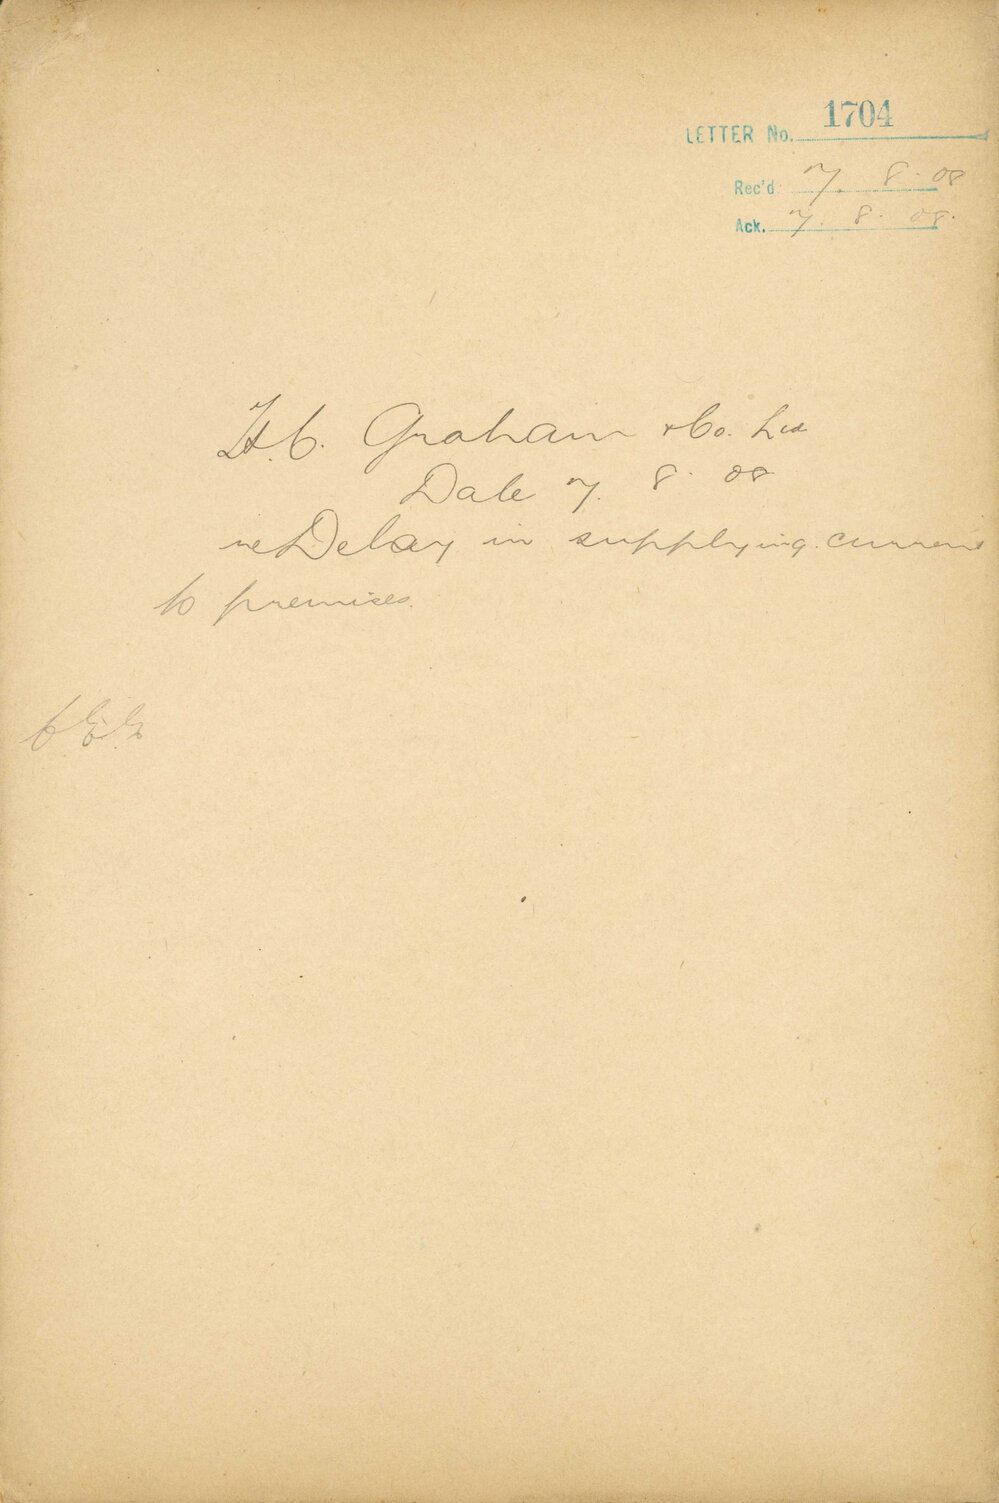 LETTER No. 1704
Rec'd 7. 8. 08
Ack. 7. 8. 08.
H.C. Graham & Co. Ltd
Date 7. 8. 08
re Delay in supplying current
to premises.